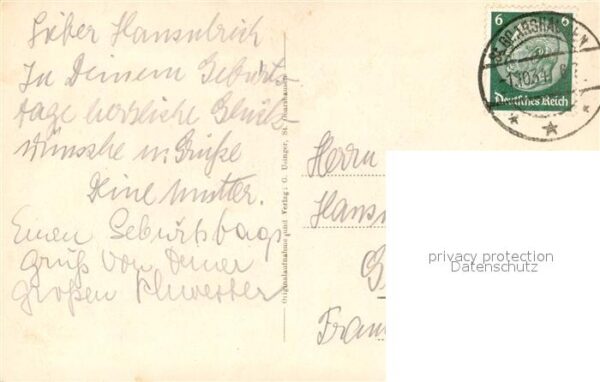 Lieber Hansulrich
Zu Deinem Geburts-
tage herzliche Glück-
wünsche u. Grüße
Deine Mutter.
Einen Geburtstags
gruß von Deiner
großen Schwester
Originalaufnahme und Verlag: O. Usinger, St. Goarshausen
Herrn
Hans
Fran
6 6
Deutsches Reich
ST. GOARSHAUSEN
privacy protection
Datenschutz